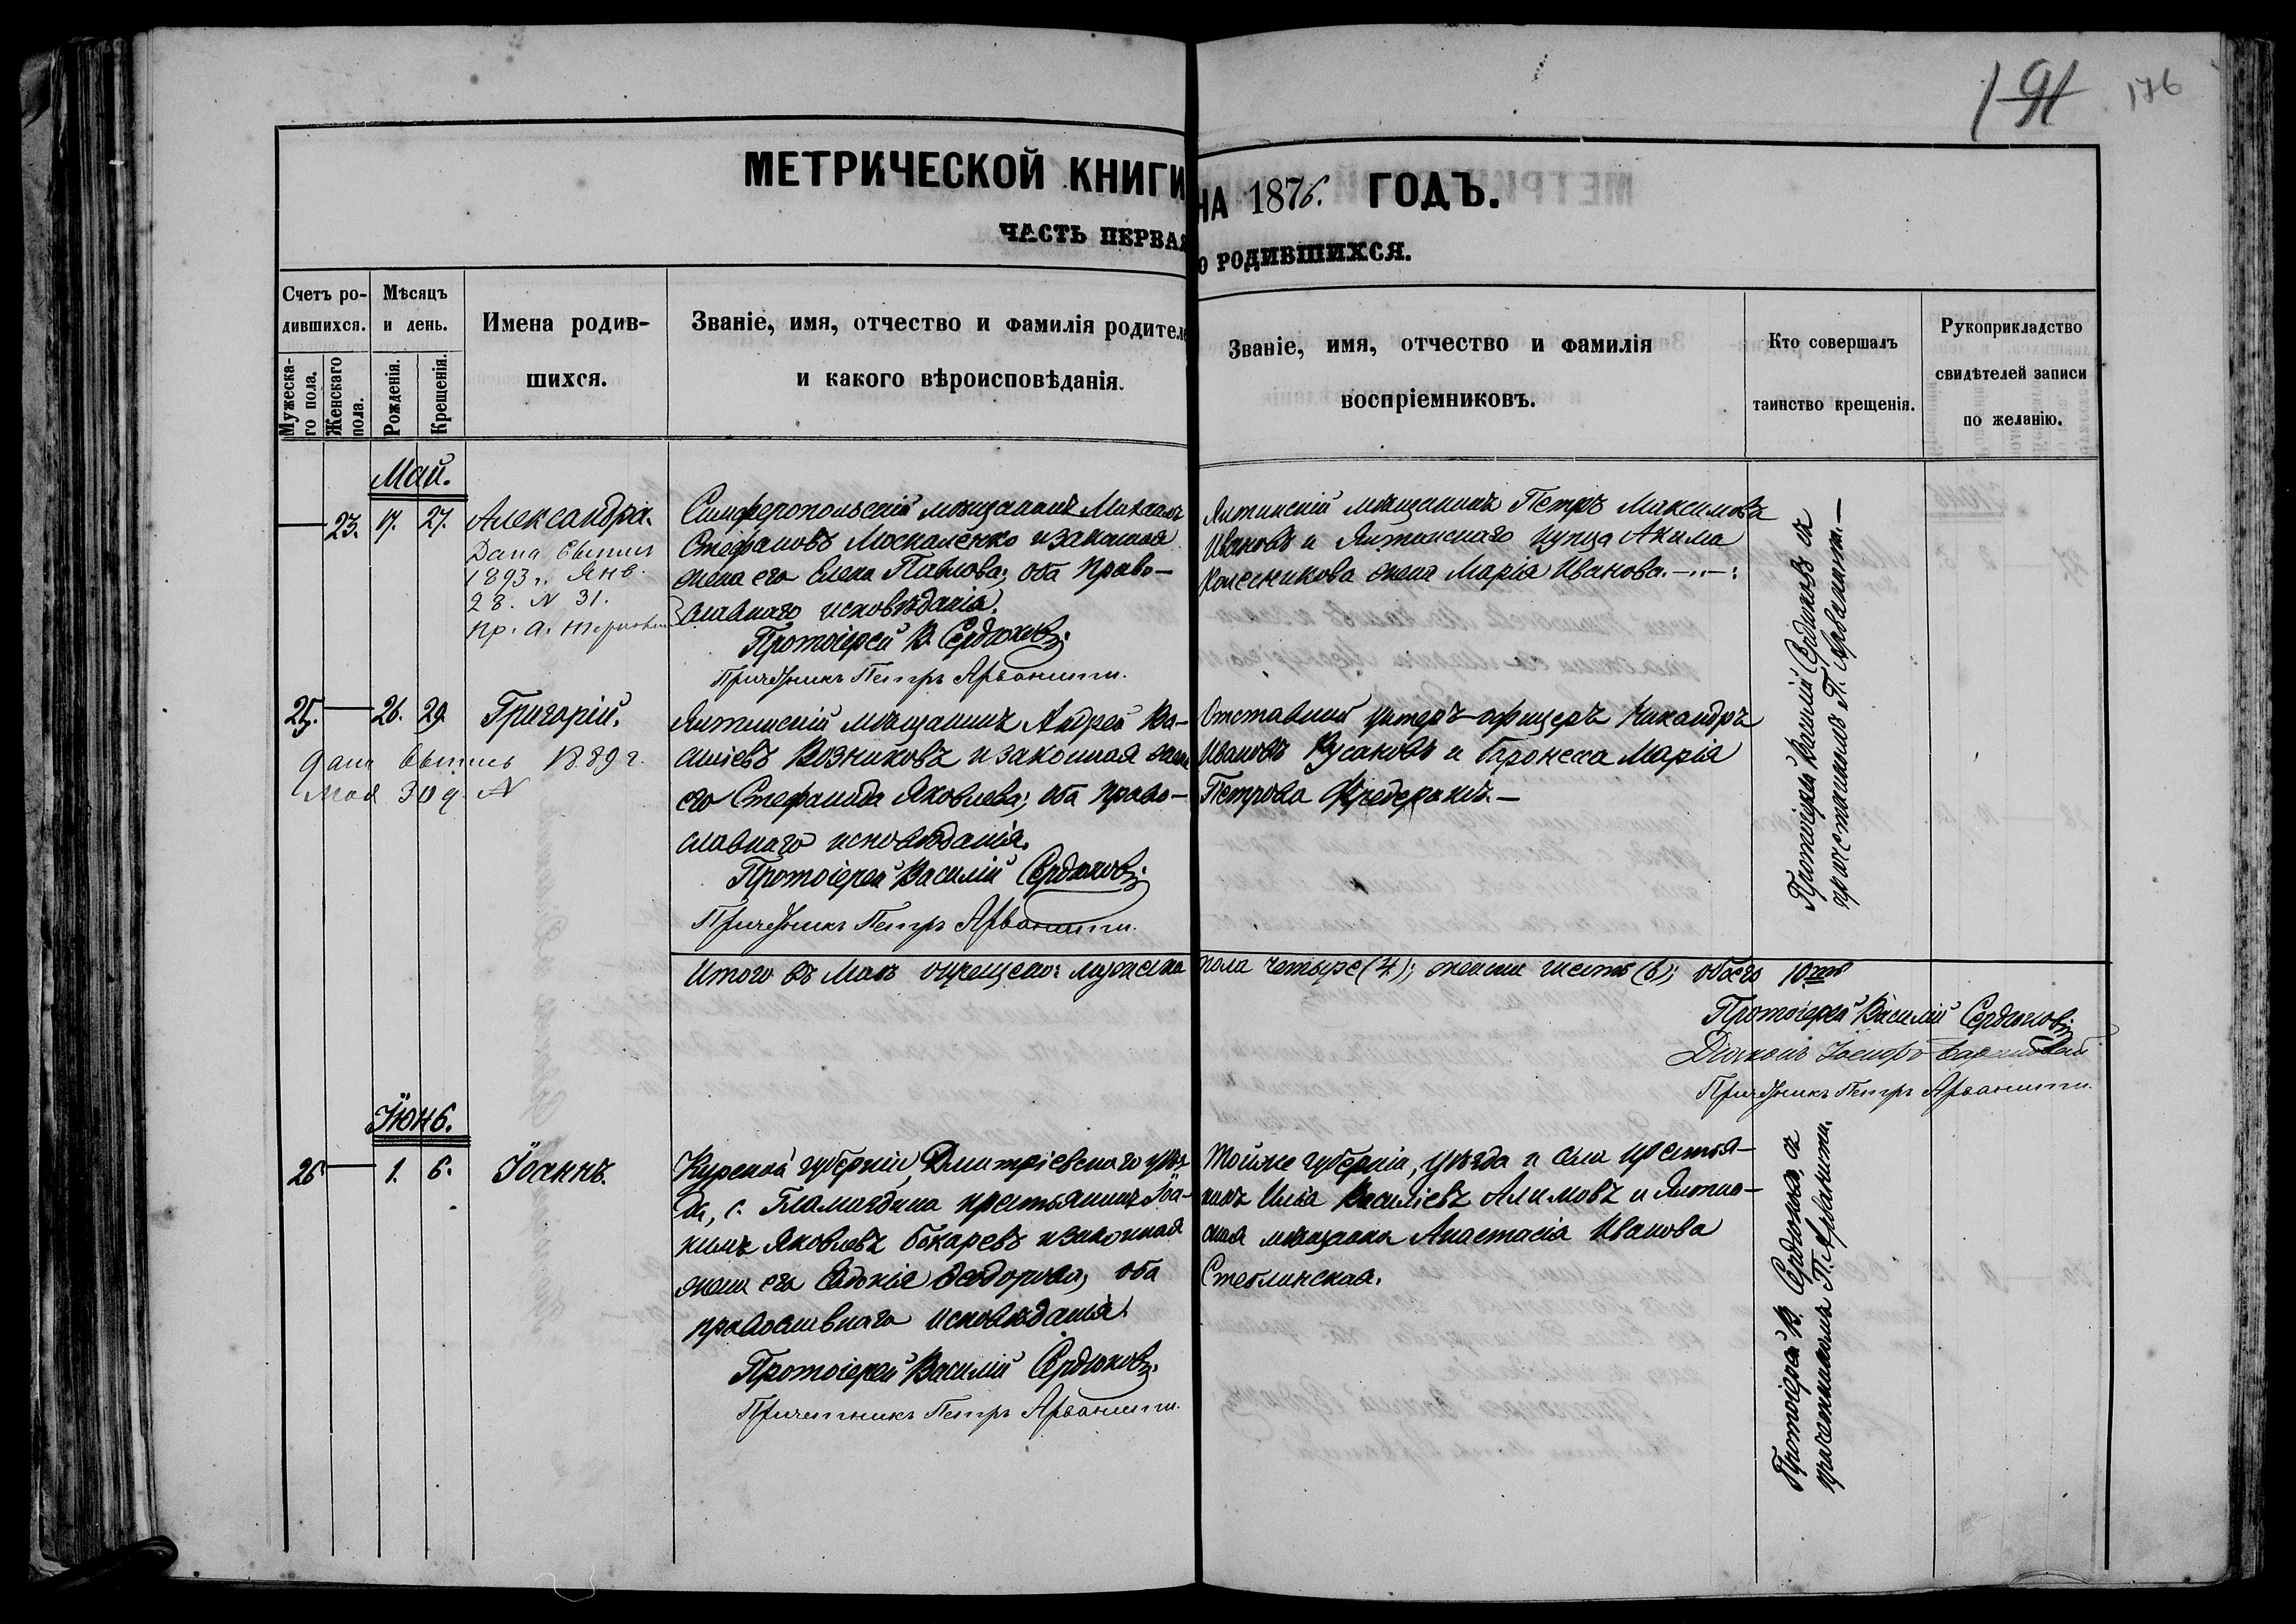 191 176
МЕТРИЧЕСКОЙ КНИГИ НА 1876. ГОДЪ.
ЧАСТЬ ПЕРВАЯ О РОДИВШИХСЯ.
Счетъ родившихся.
Мужескаго пола.
Женскаго пола.
Мѣсяцъ и день.
Рожденія.
Крещенія.
Имена родив-
шихся.
Званіе, имя, отчество и фамилія родителе
и какого вѣроисповѣданія.
Званіе, имя, отчество и фамилія
воспріемниковъ.
Кто совершалъ
таинство крещенія.
Рукоприкладство
свидѣтелей записи
по желанію.
Май.
23. 17. 27. Александра.
Дана выпись
1893 г. Янв.
28. N 31.
Пр. А.
Симферопольскій мѣщанинъ Михаилъ
Стефановъ Москаленко и законная
жена его Елена Павлова; оба право-
славнаго исповѣданія.
Протоіерей В. Сердюковъ.
Причетникъ Петръ Арванити.
Ялтинскій мѣщанинъ Петръ Максимовъ
Ивановъ и Ялтинскаго купца Акима
Колесникова жена Марія Иванова.
Протоіерей Василій Сердюковъ съ
причетникомъ П. Арванити.—
25. 26. 29. Григорій.
Дана выпись 1889 г.
Мая 30 д. N
Ялтинскій мѣщанинъ Андрей Ва-
силіевъ Возниковъ и законная жена
его Стефанида Яковлева; оба право-
славнаго исповѣданія.
Протоіерей Василій Сердюковъ.
Причетникъ Петръ Арванити.
Отставной унтеръ-офицеръ Никандръ
Ивановъ Русаковъ и баронесса Марія
Петрова Фредериксъ.—
Итого въ Маѣ окрещено: мужеска пола четыре (4); женска шесть (6); обоего 10ть
Протоіерей Василій Сердюковъ
Діаконъ Іосифъ
Причетникъ Петръ Арванити.
Іюнь.
26 1. 6. Іоаннъ.
Курской губерніи, Дмитріевскаго уѣз-
да, с. крестьянинъ Іоа-
кимъ Яковлевъ Бокаревъ и законная
жена его Евдокія Ѳеодорова; оба
православнаго исповѣданія.
Протоіерей Василій Сердюковъ.
Причетникъ Петръ Арванити.
Той же губерніи, уѣзда и села крестья-
нинъ Илія Василіевъ Алимовъ и Ялтин-
ская мѣщанка Анастасія Иванова
Стеблинская.
Протоіерей В. Сердюковъ съ
причетникомъ П. Арванити.